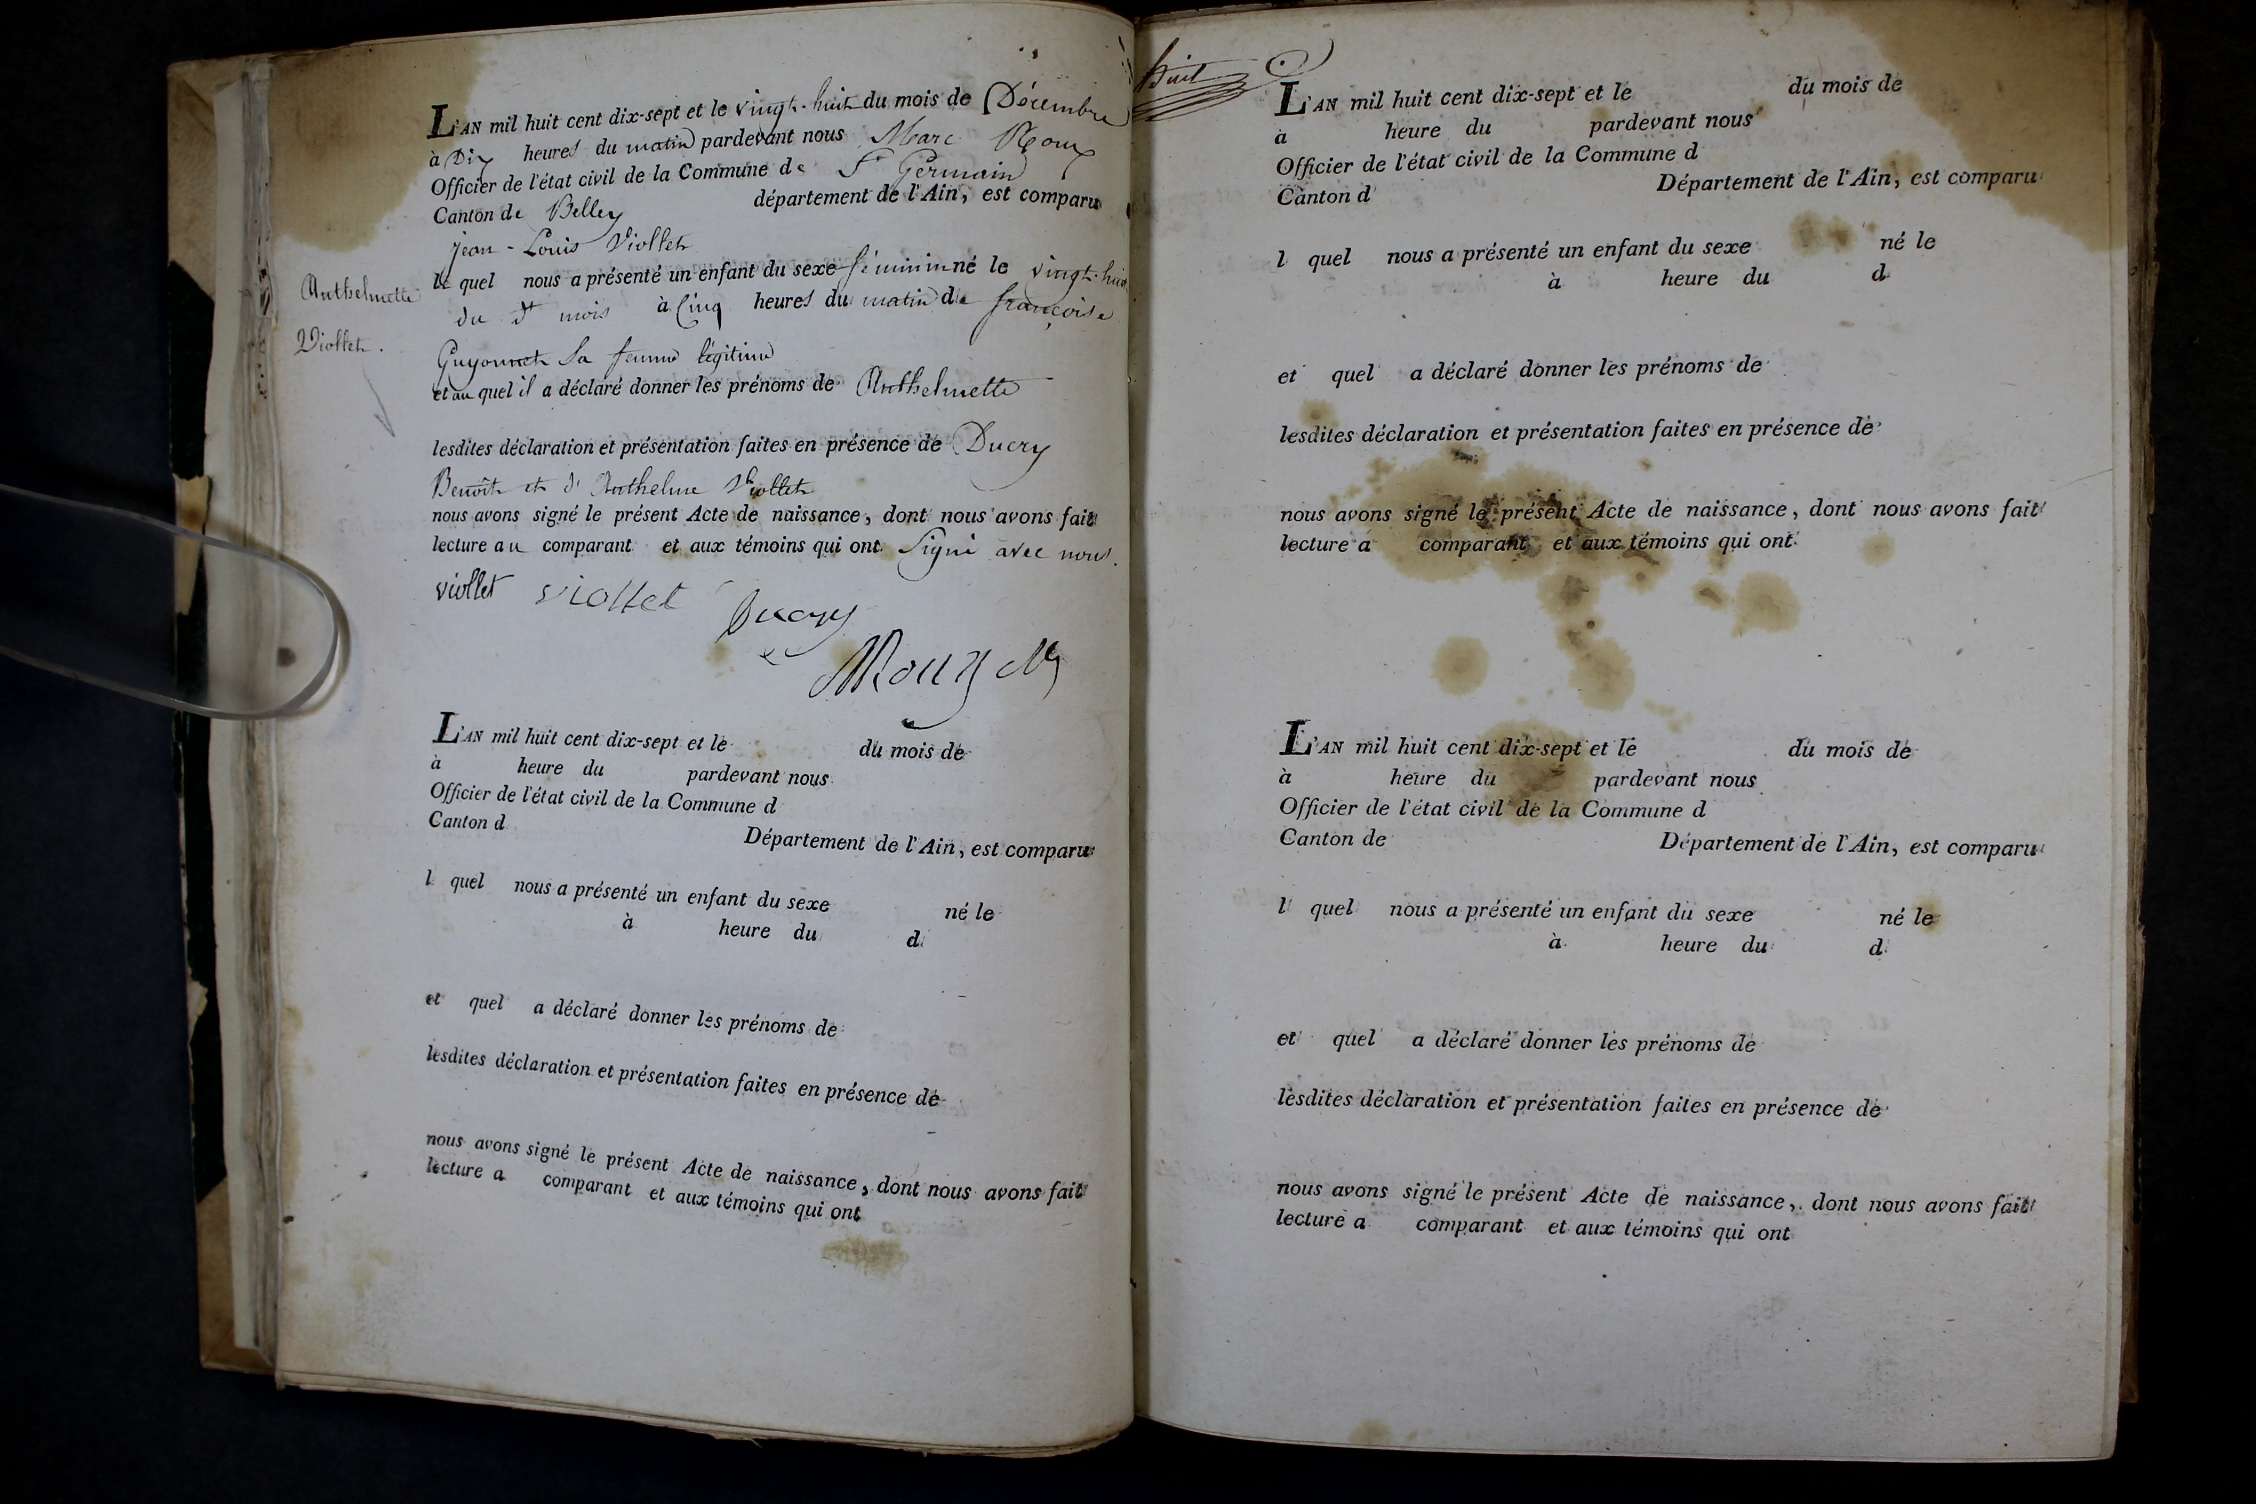 L'AN mil huit cent dix-sept et le vingt-huit du mois de Décembre
à Dix heures du matin pardevant nous Marc Roux
Officier de l'état civil de la Commune de St Germain
Canton de Belley département de l'Ain, est comparu
jean-Louis Viollet
le quel nous a présenté un enfant du sexe féminin né le vingt-huit
du dt mois à Cinq heures du matin de françoise
Guyonnet sa femme légitime
et au quel il a déclaré donner les prénoms de Anthelmette
lesdites déclaration et présentation faites en présence de Ducry
Benoît et d'Anthelme Viollet
nous avons signé le présent Acte de naissance, dont nous avons fait
lecture au comparant et aux témoins qui ont Signé avec nous.
viollet viollet Ducry
Roux
Anthelmette
Viollet.
L'AN mil huit cent dix-sept et le du mois de
à heure du pardevant nous
Officier de l'état civil de la Commune d
Canton d Département de l'Ain, est comparu
l quel nous a présenté un enfant du sexe né le
à heure du d
et quel a déclaré donner les prénoms de
lesdites déclaration et présentation faites en présence de
nous avons signé le présent Acte de naissance, dont nous avons fait
lecture a comparant et aux témoins qui ont
huit
L'AN mil huit cent dix-sept et le du mois de
à heure du pardevant nous
Officier de l'état civil de la Commune d
Canton d Département de l'Ain, est comparu
l quel nous a présenté un enfant du sexe né le
à heure du d
et quel a déclaré donner les prénoms de
lesdites déclaration et présentation faites en présence de
nous avons signé le présent Acte de naissance, dont nous avons fait
lecture a comparant et aux témoins qui ont
L'AN mil huit cent dix-sept et le du mois de
à heure du pardevant nous
Officier de l'état civil de la Commune d
Canton de Département de l'Ain, est comparu
l quel nous a présenté un enfant du sexe né le
à heure du d
et quel a déclaré donner les prénoms de
lesdites déclaration et présentation faites en présence de
nous avons signé le présent Acte de naissance, dont nous avons fait
lecture a comparant et aux témoins qui ont